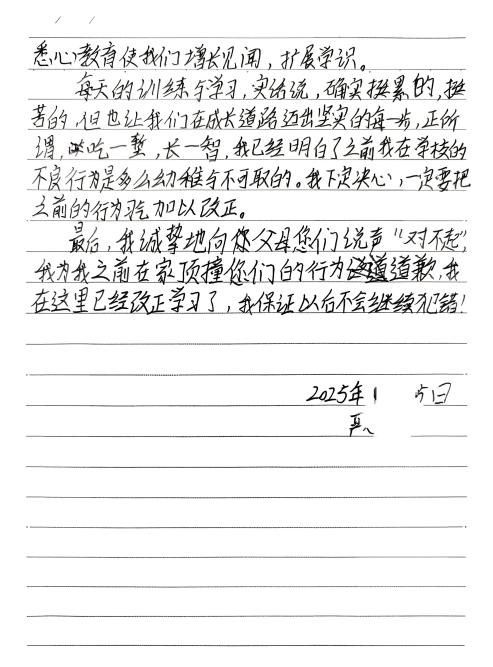 悉心教育使我们增长见闻，扩展学识。
每天的训练与学习，实话说，确实挺累的，挺
苦的，但也让我们在成长道路迈出坚实的每一步，正所
谓，吃一堑，长一智，我已经明白了之前我在学校的
不良行为是多么幼稚与不可取的。我下定决心，一定要把
之前的行为习气加以改正。
最后，我诚挚地向你父母您们说声“对不起”，
我为我之前在家顶撞您们的行为道道歉，我
在这里已经改正学习了，我保证以后不会继续犯错！
2025年1 日